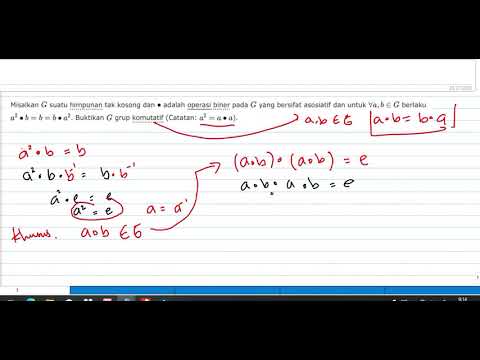 Misalkan G suatu himpunan tak kosong dan • adalah operasi biner pada G yang bersifat asosiatif dan untuk ∀a, b ∈ G berlaku
a² • b = b = b • a². Buktikan G grup komutatif (Catatan: a² = a • a).
a.b ∈ G
a•b = b•a
a² • b = b
a² • b • b⁻¹ = b • b⁻¹
a² • e = e
a² = e
a = a⁻¹
Khusus. a•b ∈ G
(a•b) • (a•b) = e
a•b • a•b = e
1